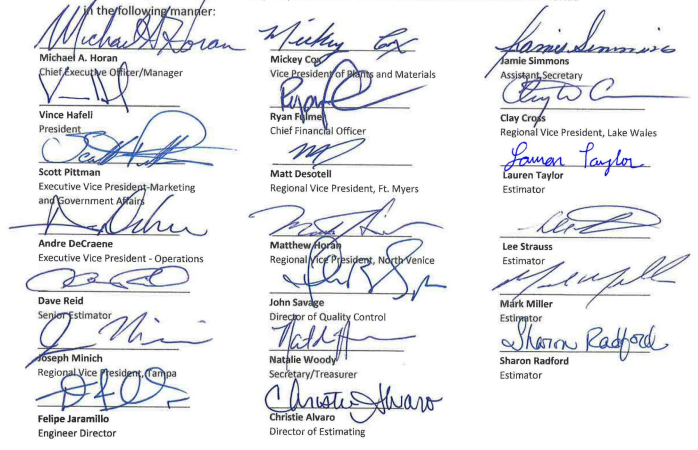 in the following manner:
Michael A Horan
Michael A. Horan
Chief Executive Officer/Manager
Vince Hafeli
President
Scott Pittman
Executive Vice President-Marketing
and Government Affairs
Andre DeCraene
Executive Vice President - Operations
Dave Reid
Senior Estimator
Joseph Minich
Regional Vice President, Tampa
Felipe Jaramillo
Engineer Director
Mickey Cox
Mickey Cox
Vice President of Plants and Materials
Ryan
Chief Financial Officer
Matt Desotell
Regional Vice President, Ft. Myers
Matthew Horan
Regional Vice President, North Venice
John Savage
Director of Quality Control
Natalie Woody
Secretary/Treasurer
Christie Alvaro
Christie Alvaro
Director of Estimating
Jamie Simmons
Jamie Simmons
Assistant Secretary
Clay Cross
Regional Vice President, Lake Wales
Lauren Taylor
Lauren Taylor
Estimator
Lee Strauss
Estimator
Mark Miller
Estimator
Sharon Radford
Sharon Radford
Estimator